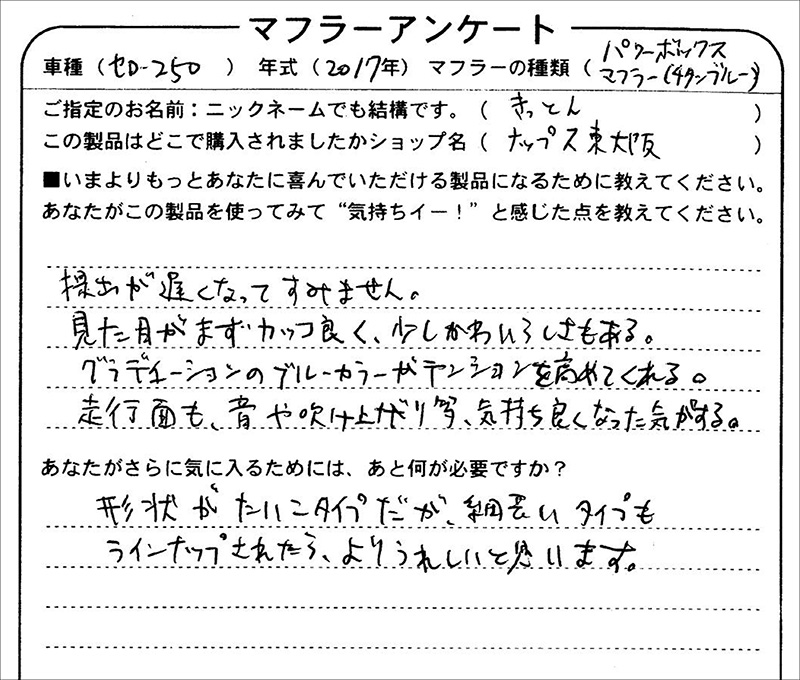 マフラーアンケート
車種（セロー250　）年式（2017年）マフラーの種類（パワーボックス
マフラー（チタンブルー）
ご指定のお名前：ニックネームでも結構です。（　きっとん　）
この製品はどこで購入されましたかショップ名（　ナップス東大阪　）
■いまよりもっとあなたに喜んでいただける製品になるために教えてください。
あなたがこの製品を使ってみて“気持ちイー！”と感じた点を教えてください。
提出が遅くなってすみません。
見た目がまずカッコ良く、少しかわいらしさもある。
グラデーションのブルーカラーがテンションを高めてくれる。
走行面も、音や吹け上がり等、気持ち良くなった気がする。
あなたがさらに気に入るためには、あと何が必要ですか？
形状がたいこタイプだが、細長いタイプも
ラインナップされたら、よりうれしいと思います。